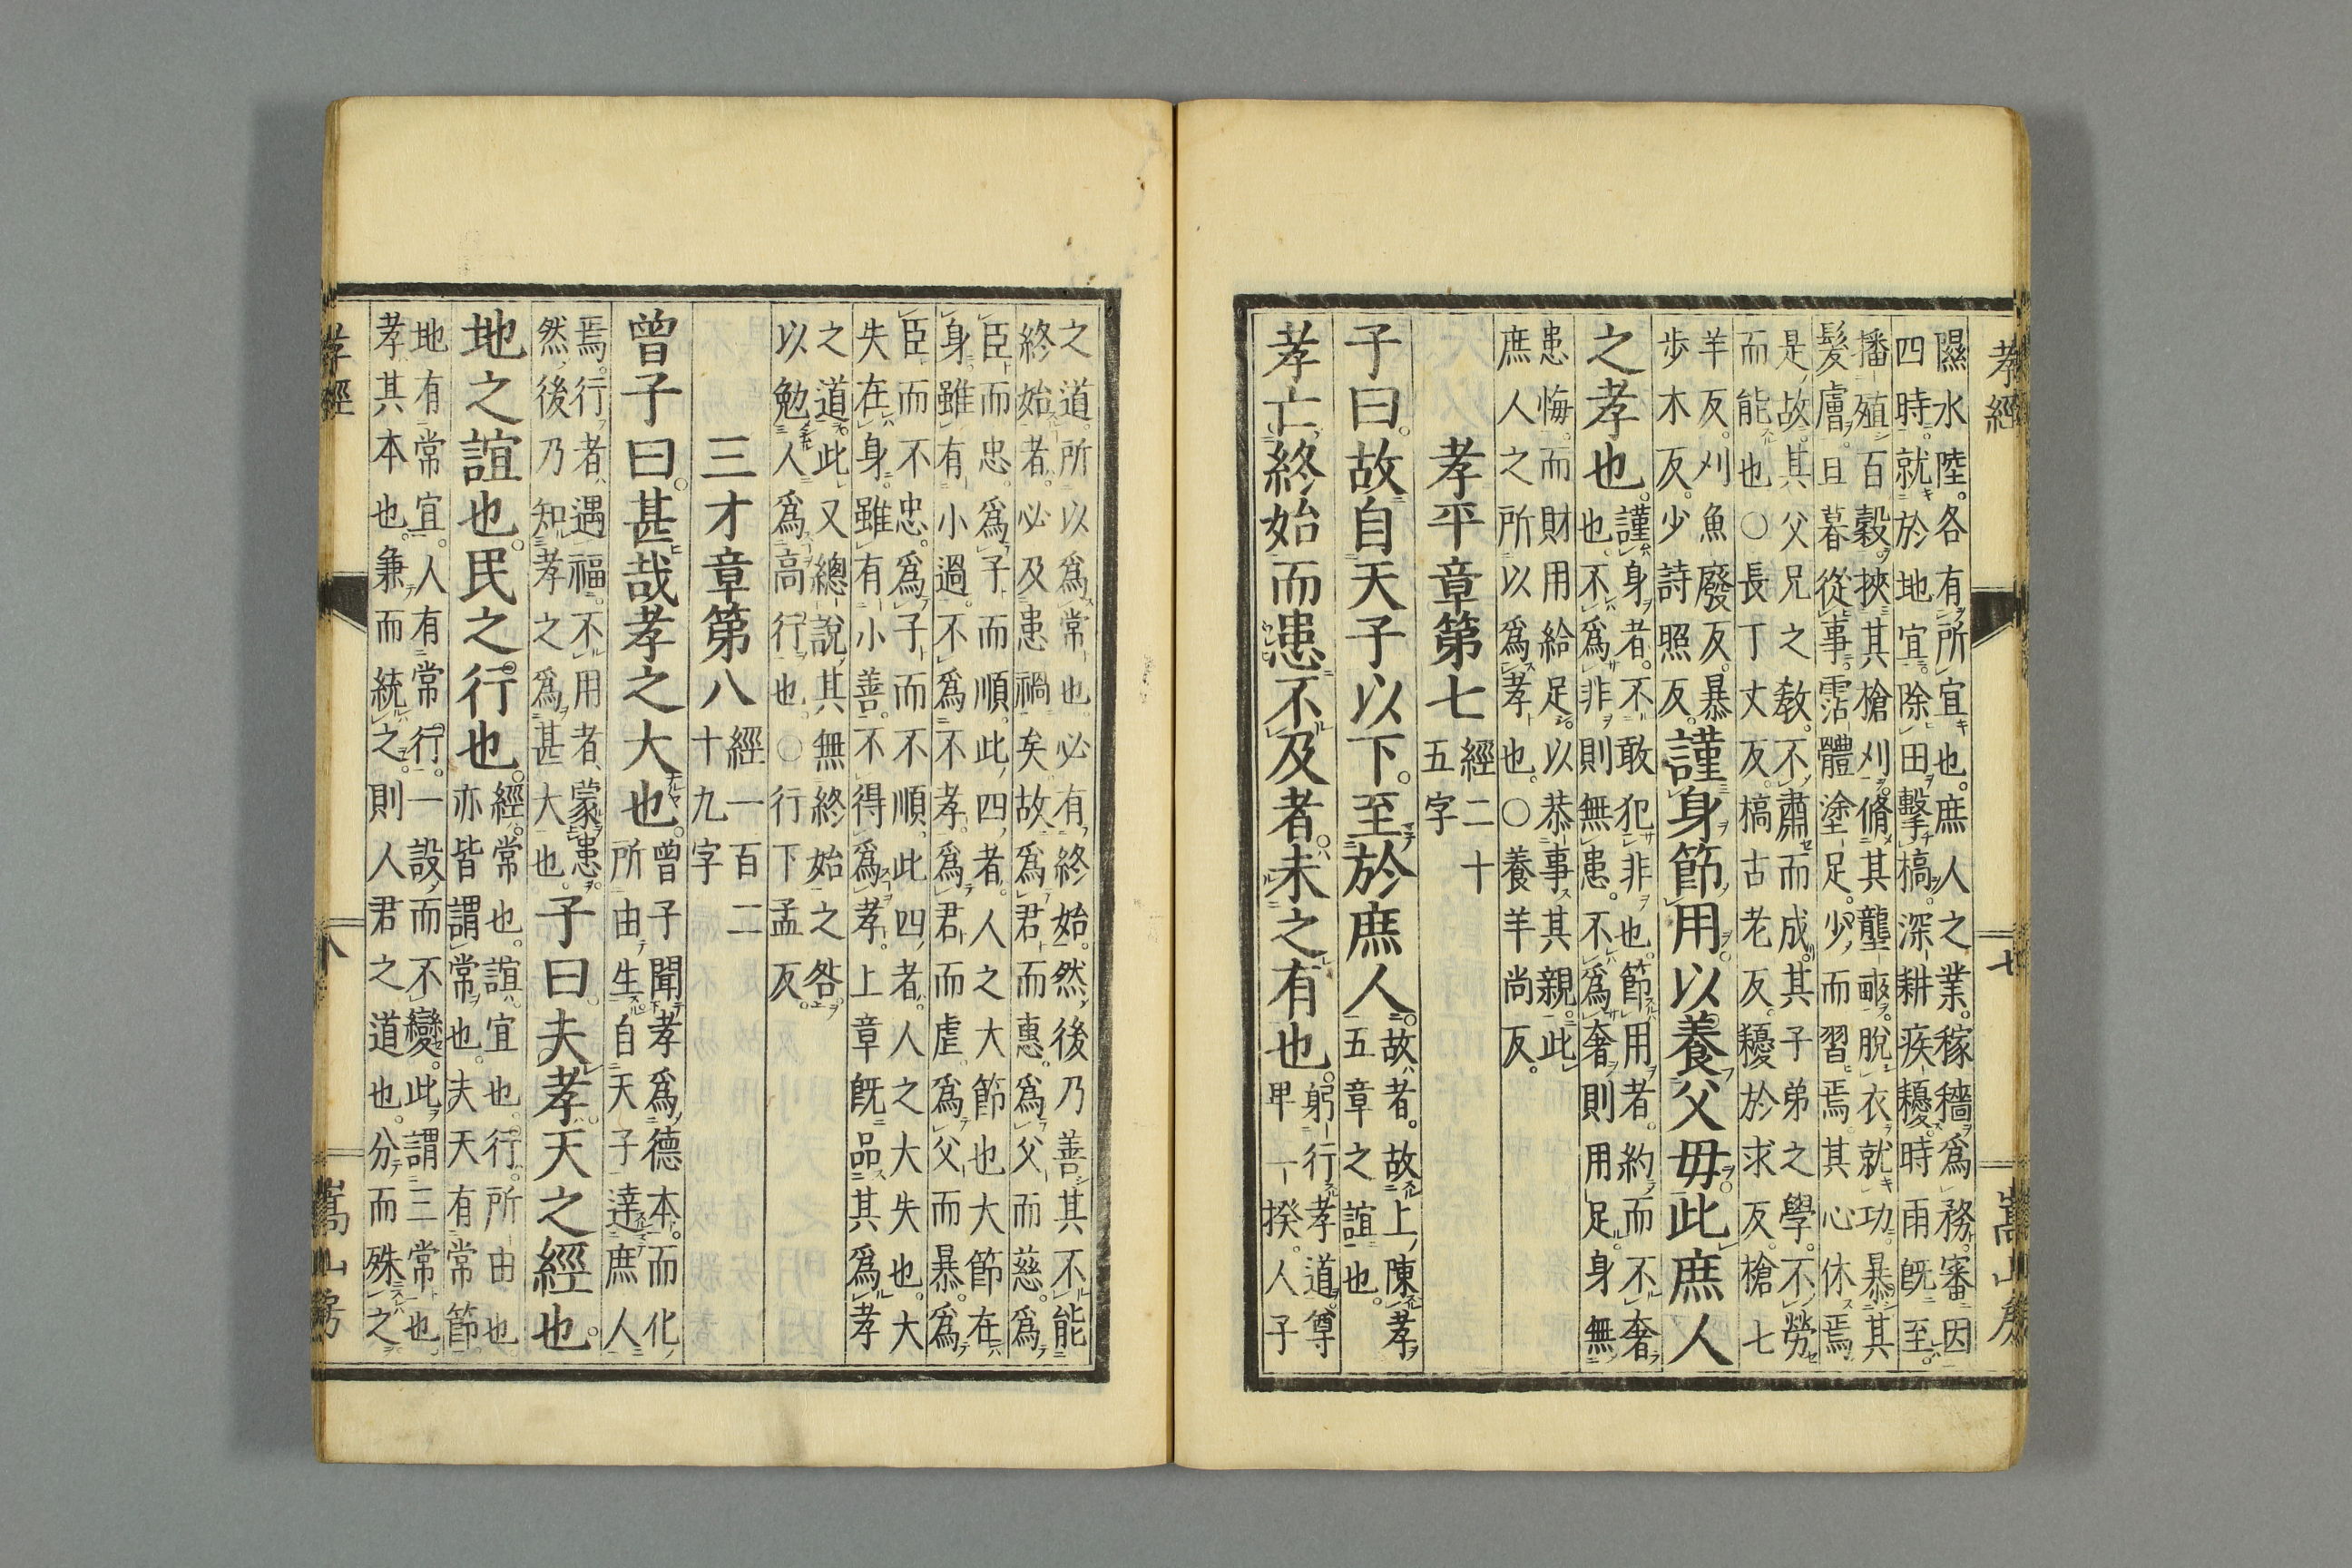 孝經 七 嵩山房
隰水陸。各有所宜也。庶人之業。稼穡爲務。審因
四時。就於地宜。除田擊槁。深耕疾耰。時雨既至。
播殖百穀。挾其槍刈。脩其壟畝。脫衣就功。暴其
髮膚。旦暮從事。霑體塗足。少而習焉。其心休焉。
是故其父兄之教。不肅而成。其子弟之學。不勞
而能也○長丁丈反。槁古老反。耰於求反。槍七
羊反。刈魚廢反。暴
步木反。少詩照反。
謹身節用。以養父毋。此庶人
之孝也。
謹身者。不敢犯非也。節用者。約而不奢
也。不爲非則無患。不爲奢則用足。身無
患悔。而財用給足。以恭事其親。此
庶人之所以爲孝也。○養羊尚反。
孝平章第七
經二十
五字
子曰。故自天子以下。至於庶人。
故者。故上陳孝
五章之誼也。
孝亡終始而患不及者。未之有也。
躬行孝道尊
卑一揆。人子
之道。所以爲常也。必有終始。然後乃善其不能
終始者。必及患禍矣。故爲君而惠。爲父而慈。爲
臣而忠。爲子而順。此四者。人之大節也大節在
身。雖有小過。不爲不孝。爲君而虐。爲父而暴。爲
臣而不忠。爲子而不順。此四者。人之大失也。大
失在身。雖有小善。不得爲孝。上章既品其爲孝
之道。此又總說其無終始之咎。
以勉人爲高行也。○行下孟反。
三才章第八
經一百二
十九字
曾子曰。甚哉孝之大也。
曾子聞孝爲德本。而化
所由生自天子達庶人
焉。行者遇福。不用者蒙患。
然後乃知孝之爲甚大也。
子曰。夫孝天之經也。
地之誼也。民之行也。
經常也。誼宜也。行所由也。
亦皆謂常也。夫天有常節。
地有常宜。人有常行。一設而不變。此謂三常也。
孝其本也。兼而統之。則人君之道也。分而殊之
孝經 八 嵩山房